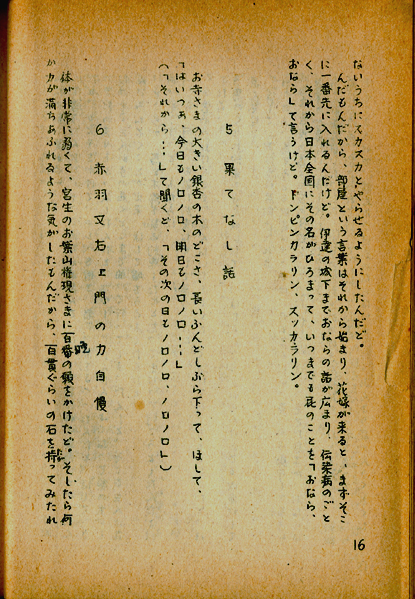 ないうちにスカスカとやらせるようにしたんだど。
んだもんだから、部屋という言葉はそれから始まり、花嫁が来ると、まずそこ
に一番先に入れるんだけど。伊達の城下までおならの話が広まり、伝染病のごと
く、それから日本全国にその名がひろまって、いつまでも屁のことを「おなら、
おなら」て言うけど。ドンピンガラリン、スッカラリン。
5 果てなし話
お寺さまの大きい銀杏の木のどこさ、長いふんどしぶら下って、ほして、
「はいつぁ、今日もノロノロ、明日もノロノロ…」
(「それから…」て聞くど、「その次の日もノロノロ、ノロノロ」)
6 赤羽又右ェ門の力自慢
体が非常に弱くて、宮生のお葉山権現さまに百晩の願をかけたど。そしたら何
か力が満ちあふれるような気がしたもんだから、百貫ぐらいの石を持ってみたれ
16